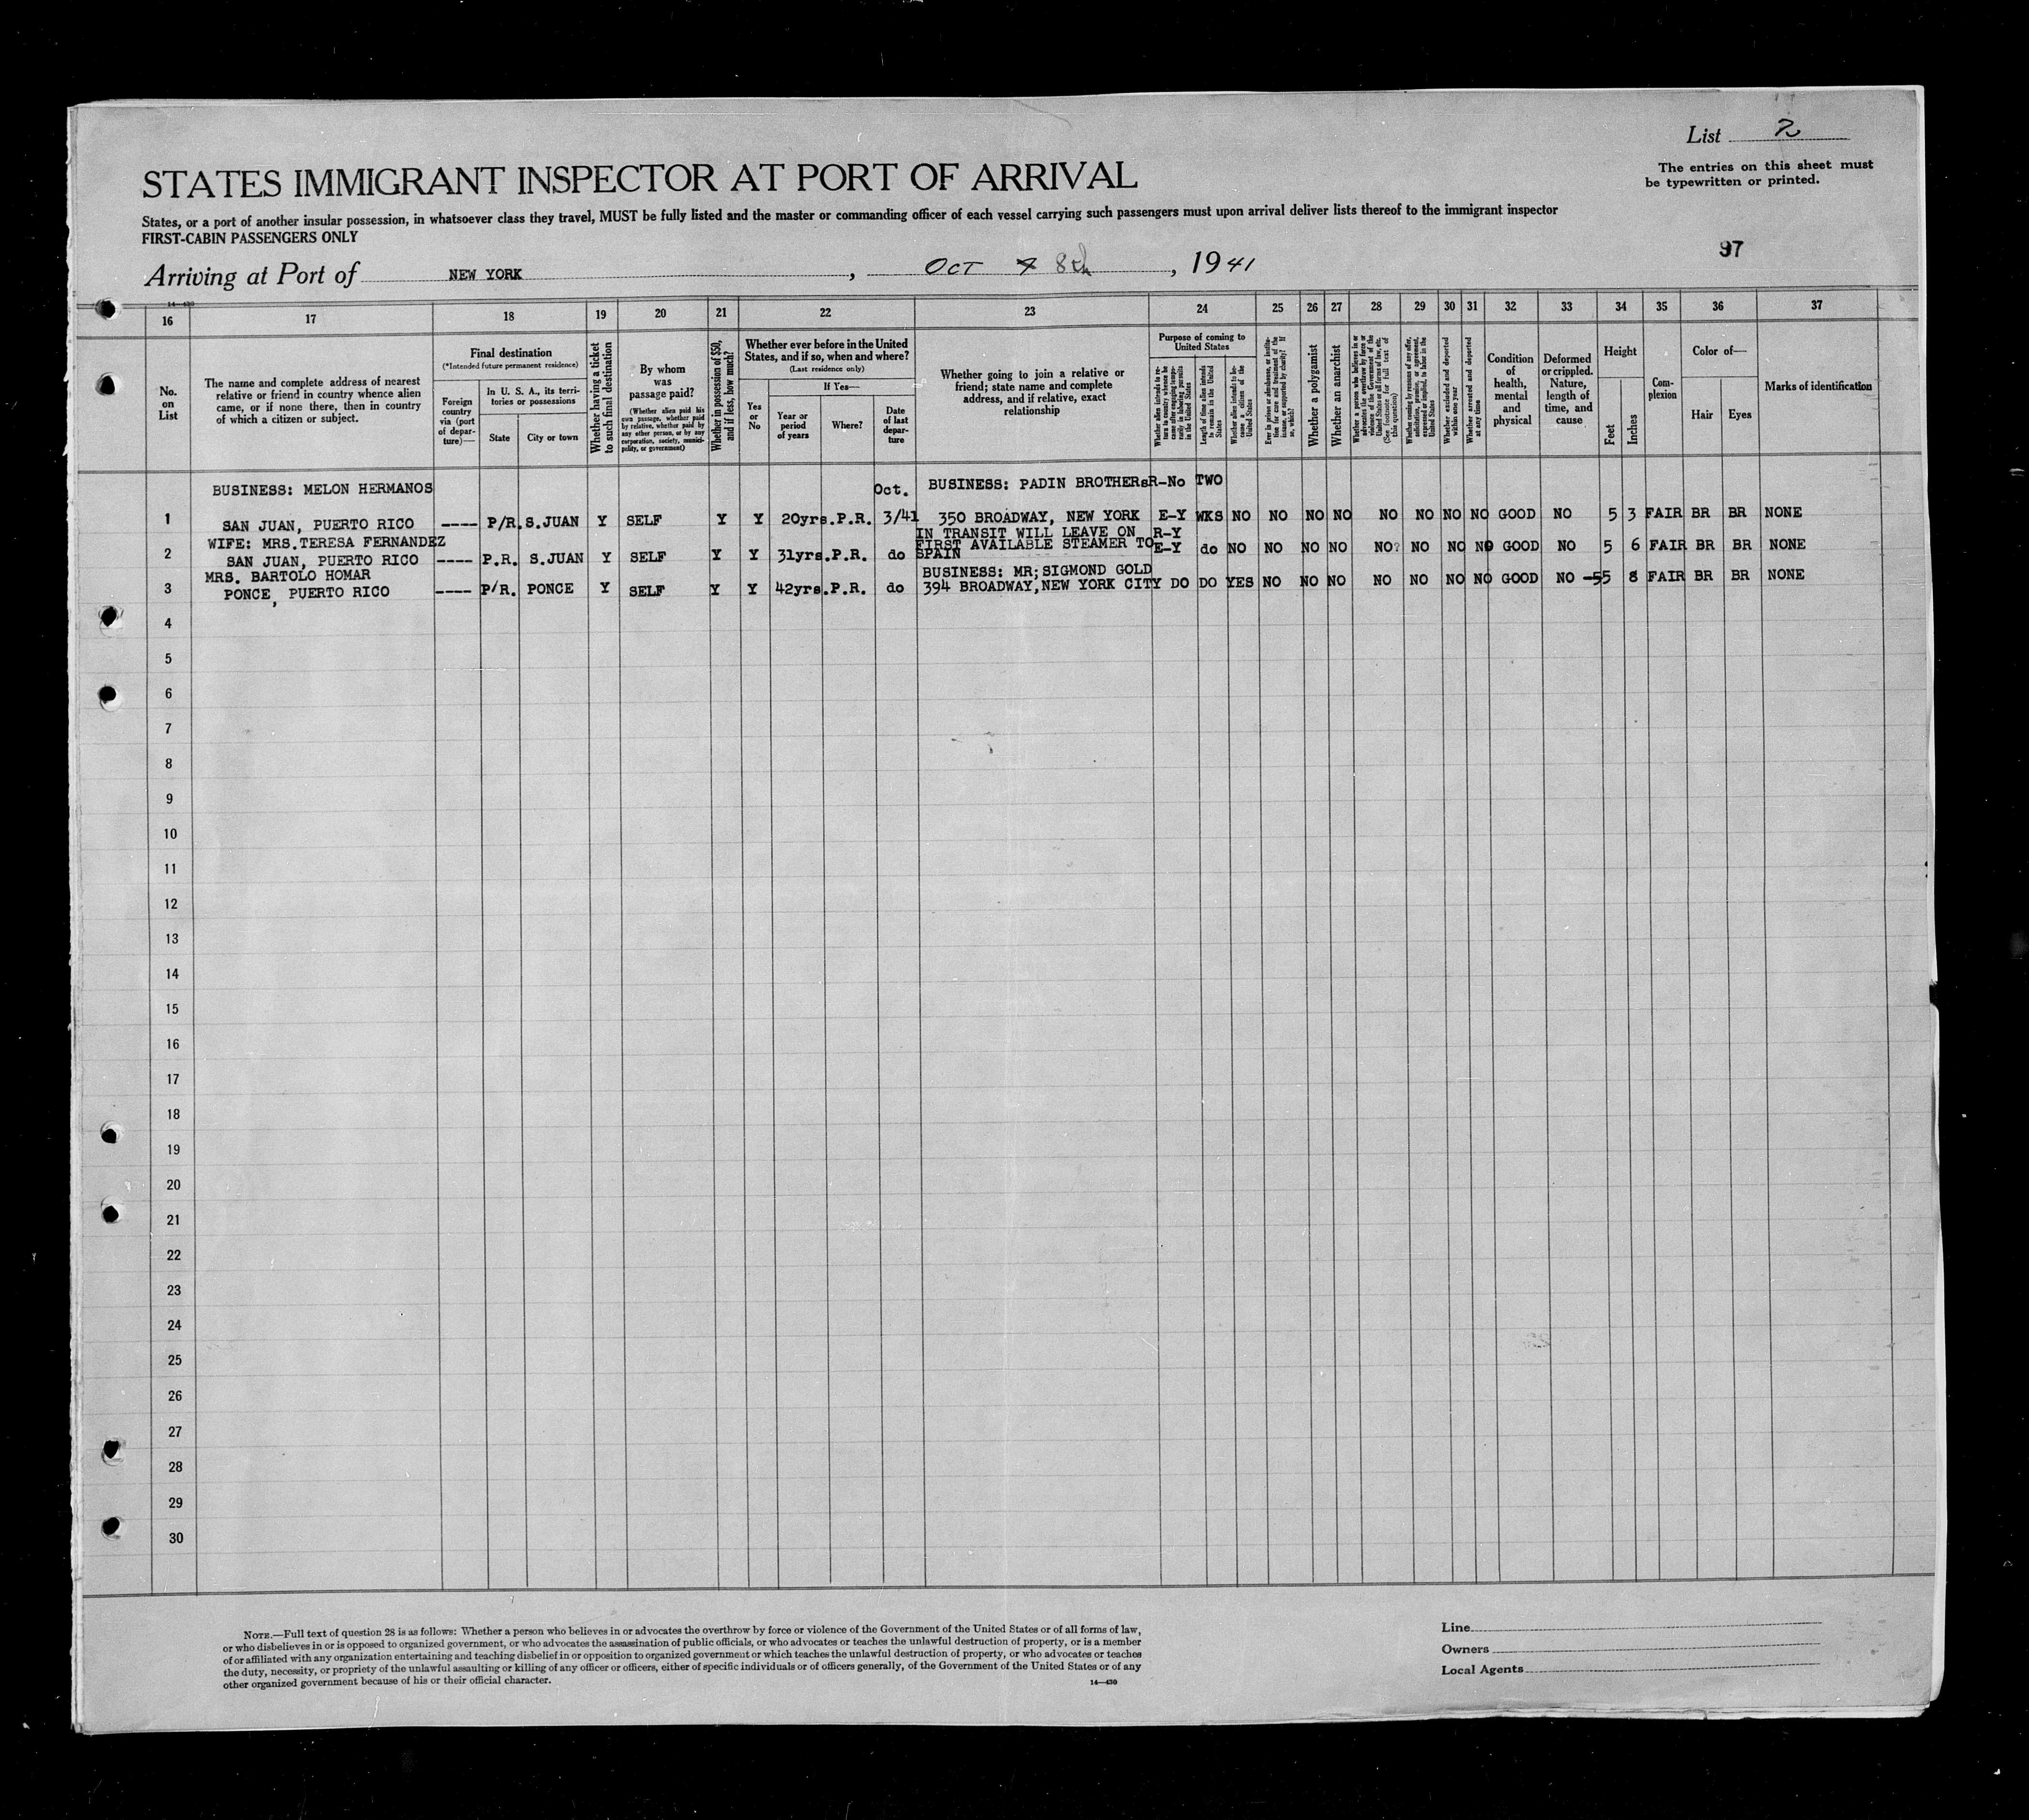 List 2
The entries on this sheet must
be typewritten or printed.
STATES IMMIGRANT INSPECTOR AT PORT OF ARRIVAL
States, or a port of another insular possession, in whatsoever class they travel, MUST be fully listed and the master or commanding officer of each vessel carrying such passengers must upon arrival deliver lists thereof to the immigrant inspector
FIRST-CABIN PASSENGERS ONLY
97
Arriving at Port of NEW YORK, OCT 8th, 1941
14—430
16 17 18 19 20 21 22 23 24 25 26 27 28 29 30 31 32 33 34 35 36 37
No.
on
List
The name and complete address of nearest
relative or friend in country whence alien
came, or if none there, then in country
of which a citizen or subject.
Final destination
(*Intended future permanent residence)
Foreign
country
via (port
of depar-
ture)—
In U. S. A., its terri-
tories or possessions
State
City or town
Whether having a ticket
to such final destination
By whom
was
passage paid?
(Whether alien paid his
own passage, whether paid
by relative, whether paid by
any other person, or by any
corporation, society, munici-
pality, or government)
Whether in possession of $50,
and if less, how much?
Whether ever before in the United
States, and if so, when and where?
(Last residence only)
Yes
or
No
If Yes—
Year or
period
of years
Where?
Date
of last
depar-
ture
Whether going to join a relative or
friend; state name and complete
address, and if relative, exact
relationship
Purpose of coming to
United States
Whether alien intends to re-
turn to country whence he
came after engaging tempo-
rarily in laboring pursuits
in the United States
Length of time alien intends
to remain in the United
States
Whether alien intends to be-
come a citizen of the
United States
Ever in prison or almshouse, or institu-
tion for care and treatment of the
insane, or supported by charity? If
so, which?
Whether a polygamist
Whether an anarchist
Whether a person who believes in or
advocates the overthrow by force or
violence of the Government of the
United States or all forms of law, etc.
(See footnote for full text of
this question)
Whether coming by reasons of any offer,
solicitation, promise, or agreement,
expressed or implied, to labor in the
United States
Whether excluded and deported
within one year
Whether arrested and deported
at any time
Condition
of
health,
mental
and
physical
Deformed
or crippled.
Nature,
length of
time, and
cause
Height
Feet
Inches
Com-
plexion
Color of—
Hair
Eyes
Marks of identification
BUSINESS: MELON HERMANOS Oct. BUSINESS: PADIN BROTHERS R-No TWO
1 SAN JUAN, PUERTO RICO ---- P/R. S.JUAN Y SELF Y Y 20yrs. P.R. 3/41 350 BROADWAY, NEW YORK E-Y WKS NO NO NO NO NO NO NO NO GOOD NO 5 3 FAIR BR BR NONE
WIFE: MRS.TERESA FERNANDEZ IN TRANSIT WILL LEAVE ON R-Y
FIRST AVAILABLE STEAMER TO
2 SAN JUAN, PUERTO RICO ---- P.R. S.JUAN Y SELF Y Y 31yrs. P.R. do SPAIN E-Y do NO NO NO NO NO? NO NO NO GOOD NO 5 6 FAIR BR BR NONE
MRS. BARTOLO HOMAR BUSINESS: MR; SIGMOND GOLD
3 PONCE, PUERTO RICO ---- P/R. PONCE Y SELF Y Y 42yrs. P.R. do 394 BROADWAY, NEW YORK CITY DO DO YES NO NO NO NO NO NO NO GOOD NO -55 8 FAIR BR BR NONE
4
5
6
7
8
9
10
11
12
13
14
15
16
17
18
19
20
21
22
23
24
25
26
27
28
29
30
NOTE.—Full text of question 28 is as follows: Whether a person who believes in or advocates the overthrow by force or violence of the Government of the United States or of all forms of law,
or who disbelieves in or is opposed to organized government, or who advocates the assassination of public officials, or who advocates or teaches the unlawful destruction of property, or is a member
of or affiliated with any organization entertaining and teaching disbelief in or opposition to organized government or which teaches the unlawful destruction of property, or who advocates or teaches
the duty, necessity, or propriety of the unlawful assaulting or killing of any officer or officers, either of specific individuals or of officers generally, of the Government of the United States or of any
other organized government because of his or their official character.
14—430
Line
Owners
Local Agents